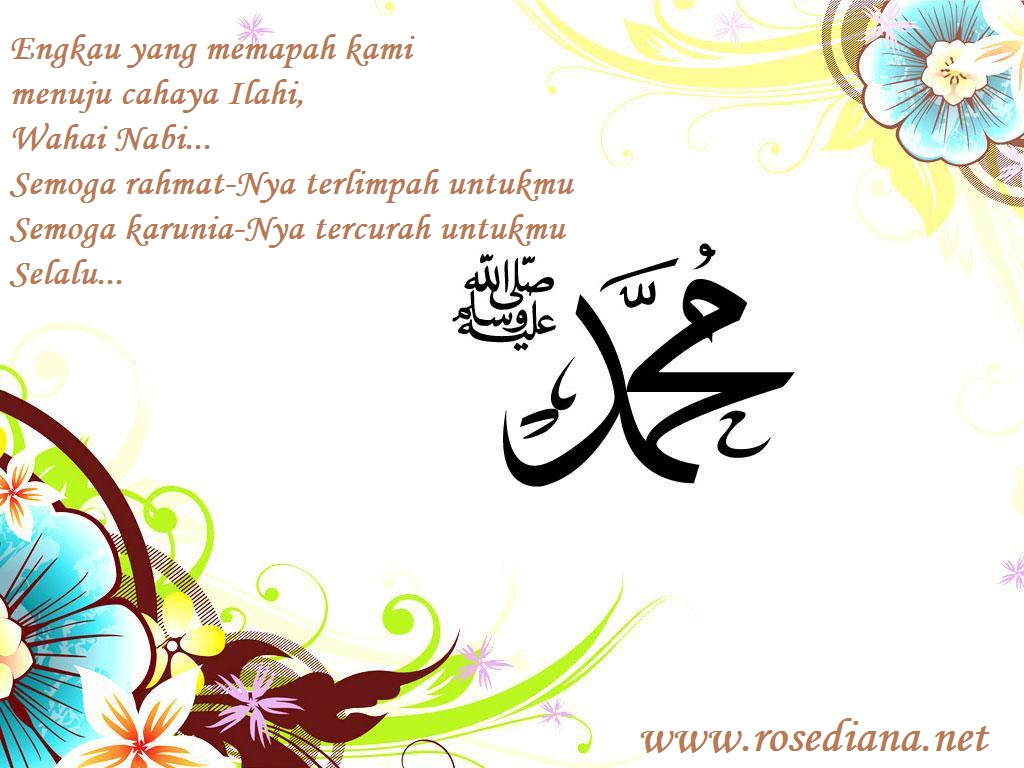 Engkau yang memapah kami
menuju cahaya Ilahi,
Wahai Nabi...
Semoga rahmat-Nya terlimpah untukmu
Semoga karunia-Nya tercurah untukmu
Selalu...
مُحَمَّد
صلى الله
عليه وسلم
www.rosediana.net